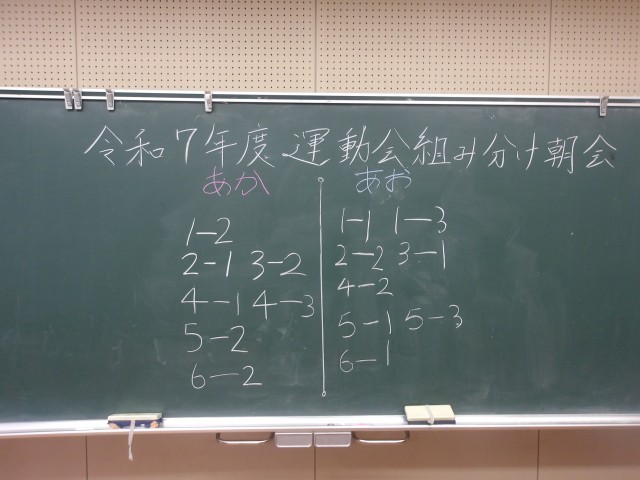 令和7年度 運動会組み分け朝会
あか
1-2
2-1 3-2
4-1 4-3
5-2
6-2
あお
1-1 1-3
2-2 3-1
4-2
5-1 5-3
6-1